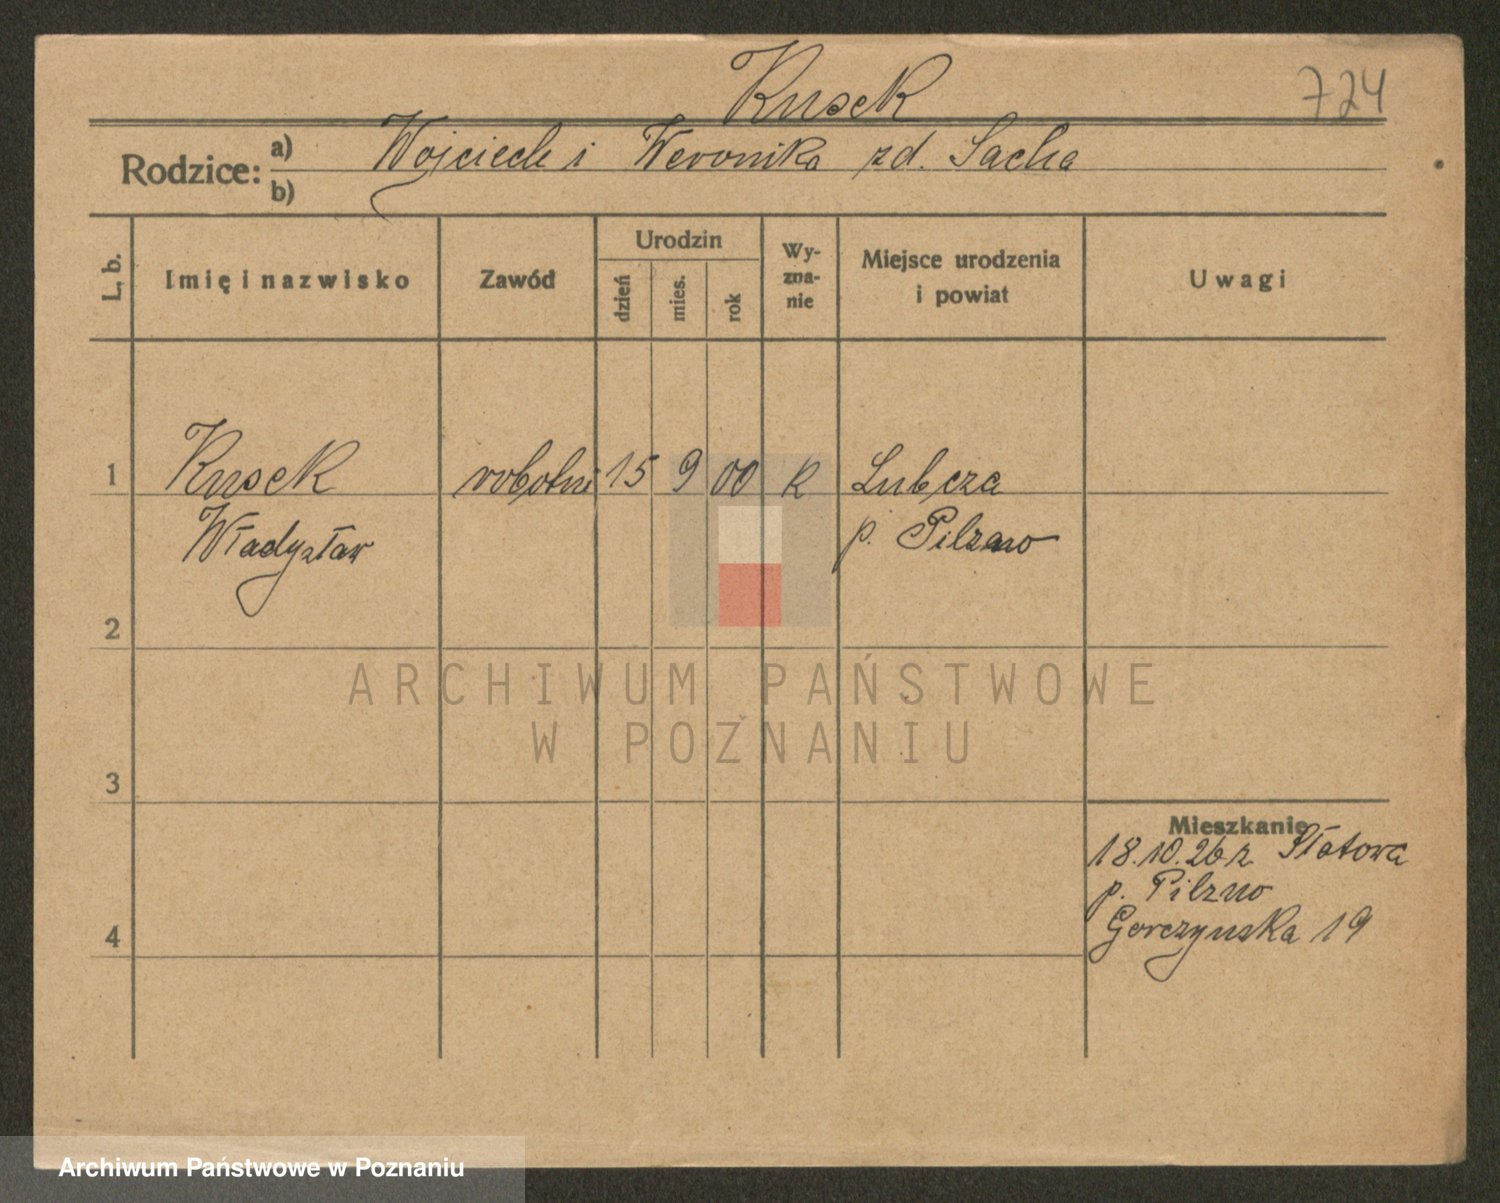 Kusek
724
Rodzice: a) Wojciech i Weronika zd. Sacha
b)
L. b.
Imię i nazwisko
Zawód
Urodzin
dzień
mies.
rok
Wy-
zna-
nie
Miejsce urodzenia
i powiat
Uwagi
1 Kusek robotni 15 9 00 k Lubcza
Władysław p. Pilzno
2
3
4
Mieszkanie
18.10.26 z
p. Pilzno
Gorczynska 19
ARCHIWUM PAŃSTWOWE
W POZNANIU
Archiwum Państwowe w Poznaniu